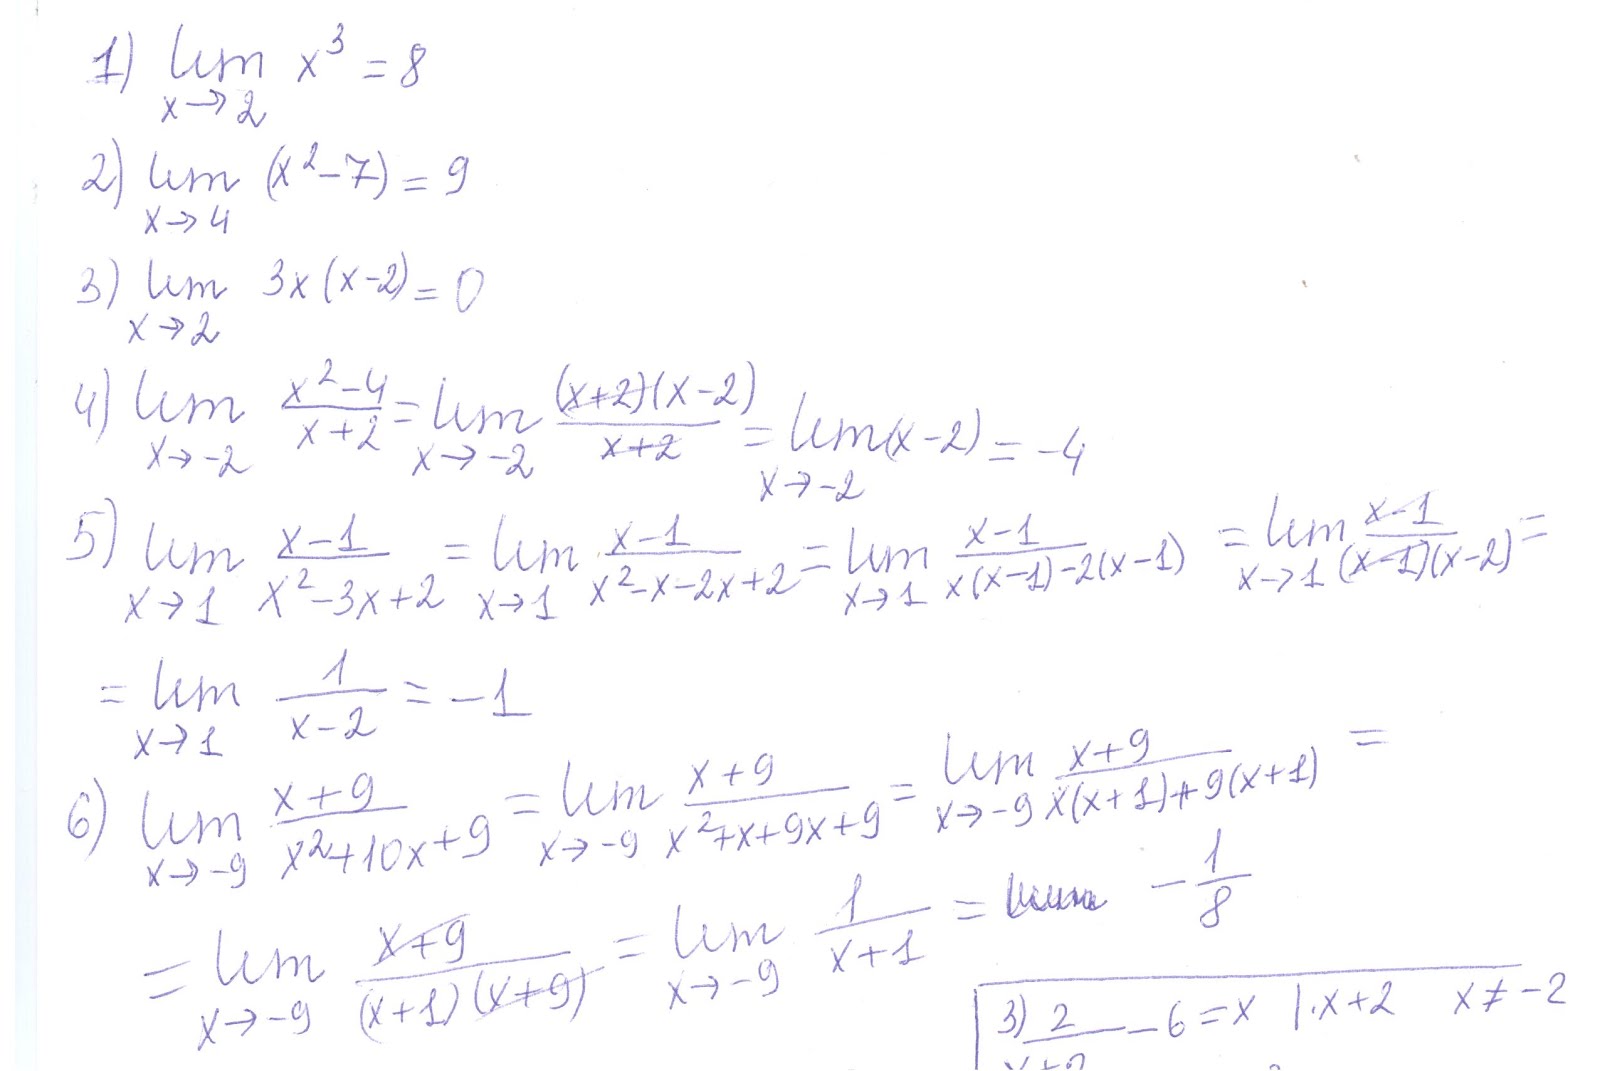 1) lim x→2 x³ = 8
2) lim x→4 (x² - 7) = 9
3) lim x→2 3x(x-2) = 0
4) lim x→-2 (x² - 4)/(x+2) = lim x→-2 ((x+2)(x-2))/(x+2) = lim x→-2 (x-2) = -4
5) lim x→1 (x-1)/(x² - 3x + 2) = lim x→1 (x-1)/(x² - x - 2x + 2) = lim x→1 (x-1)/(x(x-1) - 2(x-1)) = lim x→1 (x-1)/((x-1)(x-2)) =
= lim x→1 1/(x-2) = -1
6) lim x→-9 (x+9)/(x² + 10x + 9) = lim x→-9 (x+9)/(x² + x + 9x + 9) = lim x→-9 (x+9)/(x(x+1) + 9(x+1)) =
= lim x→-9 (x+9)/((x+1)(x+9)) = lim x→-9 1/(x+1) = -1/8
3) 2/(x+2) - 6 = x |·x+2 x ≠ -2